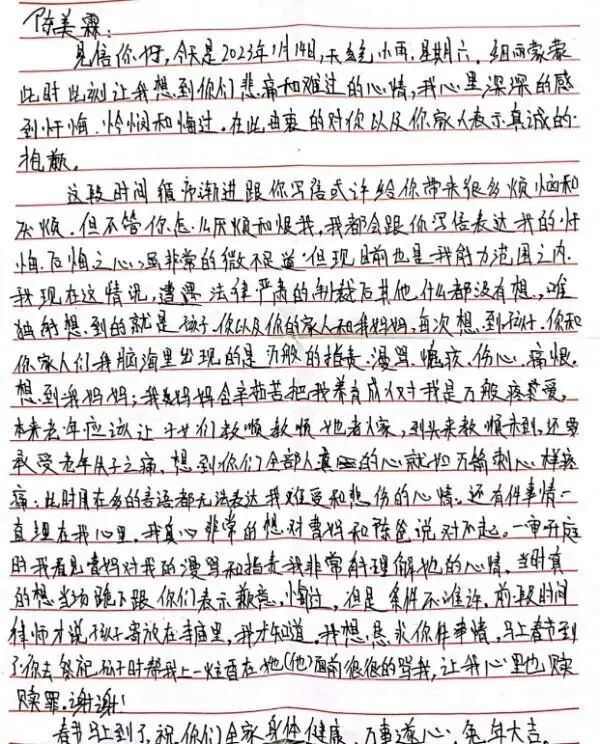 陈美霖:
见信你好,今天是2023年1月14日,天气小雨,星期六,细雨蒙蒙
此时此刻让我想到你们悲痛和难过的心情,我心里深深的感
到忏悔、怜悯和悔过。在此由衷的对你以及你家人表示真诚的
抱歉。
这段时间循序渐进跟你写信或许给你带来很多烦恼和
厌烦。但不管你怎么厌烦和恨我,我都会跟你写信表达我的忏
悔、后悔之心,虽非常的微不足道,但现目前也是我能力范围之内。
我现在这情况,遭遇法律严肃的制裁后其他什么都没有想,唯
独能想到的就是孩子、你以及你的家人和我妈妈,每次想到孩子、你和
你家人们我脑海里出现的是万般的指责、漫骂、憔疚、伤心、痛恨。
想到我妈妈;我妈妈含辛茹苦把我养育成人对我是万般疼爱,
本来老年应该让子女们教顺教顺她老人家,到头来教顺未到,还要
承受老年失子之痛,想到你们全部人真的心就如万箭刺心样疼
痛;此时用在多的言语都无法表达我难受和悲伤的心情。还有件事情一
直埋在我心里,我真心非常的想对曹妈和陈爸说对不起。一审开庭
时我看见曹妈对我的漫骂和指责我非常能理解她的心情,当时真
的想当场跪下跟你们表示歉意、悔过,但是条件不准许。前段时间
律师才说孩子寄放在寺庙里,我才知道,我想恳求你件事情,马上春节到
了你去祭祀孩子时帮我上一炷香在她(他)面前很很的骂我,让我心里也赎
赎罪。谢谢!
春节马上到了,祝你们全家身体健康、万事遂心、兔年大吉。